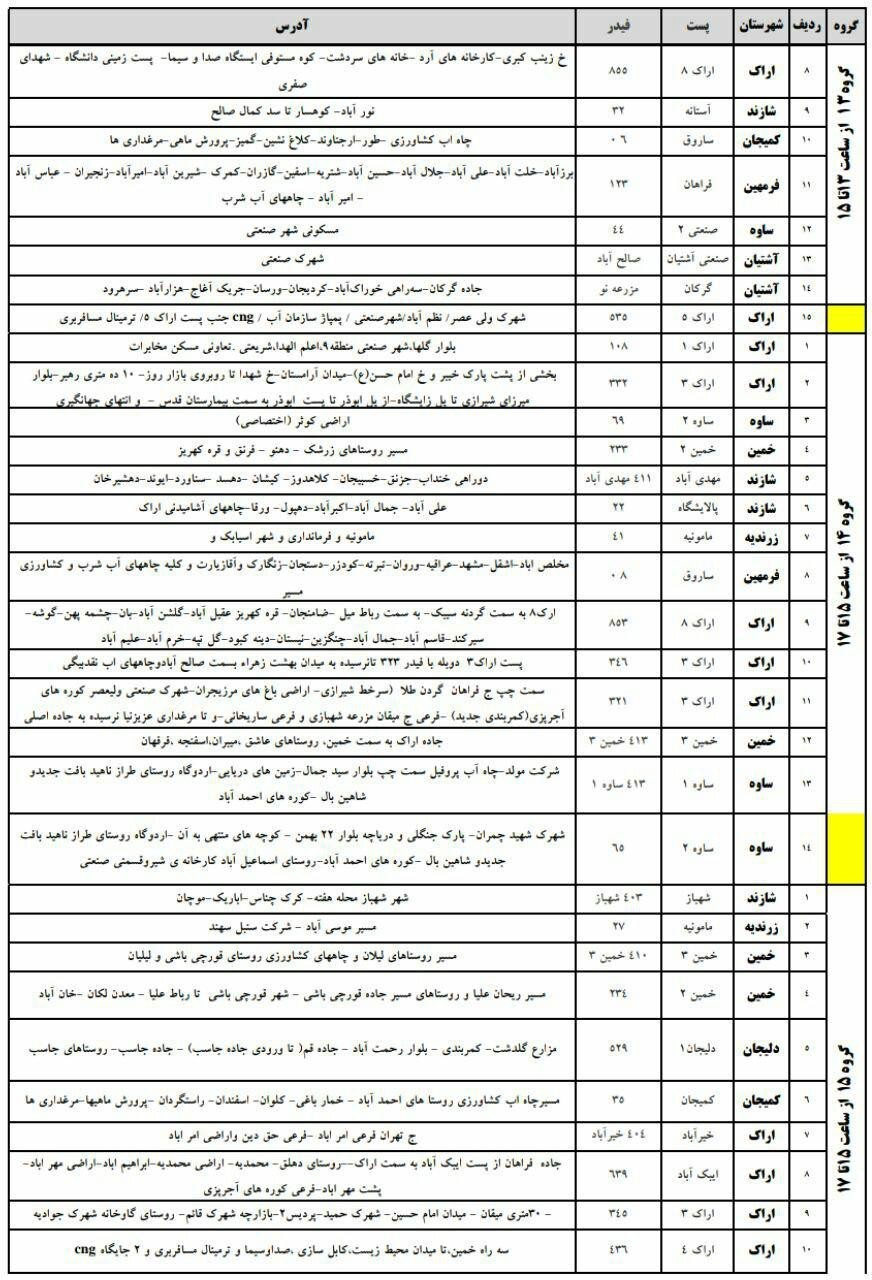 گروه ردیف شهرستان پست فیدر آدرس
گروه ۱۳ از ساعت ۱۳ تا ۱۵
۸ اراک اراک ۸ ۸۵۵ خ زینب کبری-کارخانه های آرد -خانه های سردشت- کوه مستوفی ایستگاه صدا و سیما- پست زمینی دانشگاه - شهدای
صفری
۹ شازند آستانه ۳۲ نور آباد- کوهسار تا سد کمال صالح
۱۰ کمیجان ساروق ۰۶ چاه اب کشاورزی -طور-ارجناوند-کلاغ نشین-گمیز-پرورش ماهی-مرغداری ها
۱۱ فرمهین فراهان ۱۲۳ برزآباد-خلت آباد-علی آباد-جلال آباد-حسین آباد-شتریه-اسفین-گازران-کمرک -شیرین آباد-امیرآباد-زنجیران - عباس آباد
- امیر آباد - چاههای آب شرب
۱۲ ساوه صنعتی ۲ ٤٤ مسکونی شهر صنعتی
۱۳ آشتیان صنعتی آشتیان صالح آباد شهرک صنعتی
۱٤ آشتیان گرکان مزرعه نو جاده گرکان-سه‌راهی خوراک‌آباد-کردیجان-ورسان-جریک آغاج-هزارآباد -سرهرود
۱۵ اراک اراک ۵ ۵۳۵ شهرک ولی عصر/ نظم آباد/شهرصنعتی / پمپاژ سازمان آب / cng جنب پست اراک ۵/ ترمینال مسافربری
گروه ۱۴ از ساعت ۱۵ تا ۱۷
۱ اراک اراک ۱ ۱۰۸ بلوار گلها،شهر صنعتی منطقه۹،اعلم الهدا،شریعتی .تعاونی مسکن مخابرات
۲ اراک اراک ۳ ۳۳۲ بخشی از پشت پارک خیبر و خ امام حسن(ع)-میدان آرامستان-خ شهدا تا روبروی بازار روز- ۱۰ ده متری رهبر-بلوار
میرزای شیرازی تا پل زایشگاه-از پل ابوذر تا پست ابوذر به سمت بیمارستان قدس - و انتهای جهانگیری
۳ ساوه ساوه ۲ ۶۹ اراضی کوثر (اختصاصی)
٤ خمین خمین ۲ ۲۳۳ مسیر روستاهای زرشک - دهنو - فرنق و قره کهریز
۵ شازند مهدی آباد ٤۱۱ مهدی آباد دوراهی خنداب-جزنق-خسبیجان- کلاهدوز- کیشان -دهسد -سناورد-ایوند-دهشیرخان
۶ شازند پالایشگاه ۲۲ علی آباد- جمال آباد-اکبرآباد-دهپول- ورقا-چاههای آشامیدنی اراک
۷ زرندیه مامونیه ٤۱ مامونیه و فرمانداری و شهر اسیابک و
۸ فرمهین ساروق ۰۸ مخلص اباد-اشقل-مشهد-عراقیه-وروان-تبرته-کودزر-دستجان-زنگارک وآقازیارت و کلیه چاههای آب شرب و کشاورزی
مسیر
۹ اراک اراک ۸ ۸۵۳ ارک۸ به سمت گردنه سیبک- به سمت رباط میل -ضامنجان- قره کهریز عقیل آباد-گلشن آباد-بان-چشمه پهن-گوشه-
سیرکند-قاسم آباد-جمال آباد-چنگزین-نیستان-دینه کبود-گل تپه-خرم آباد-علیم آباد
۱۰ اراک اراک ۳ ۳٤۶ پست اراک۳ دوبله با فیدر ۳۲۳ تانرسیده به میدان بهشت زهراء بسمت صالح آبادوچاههای اب نقدبیگی
۱۱ اراک اراک ۳ ۳۲۱ سمت چپ ج فراهان گردن طلا (سرخط شیرازی- اراضی باغ های مرزیجران-شهرک صنعتی ولیعصر کوره های
آجرپزی(کمربندی جدید) -فرعی ج میقان مزرعه شهبازی و فرعی ساریخانی-و تا مرغداری عزیزنیا نرسیده به جاده اصلی
۱۲ خمین خمین ۳ ٤۱۳ خمین ۳ جاده اراک به سمت خمین، روستاهای عاشق ،میبران،اسفنجه ،فرقهان
۱۳ ساوه ساوه ۱ ٤۱۳ ساوه ۱ شرکت مولد-چاه آب پروفیل سمت چپ بلوار سید جمال-زمین های دریایی-اردوگاه روستای طراز ناهید بافت جدیدو
شاهین بال -کوره های احمد آباد
۱٤ ساوه ساوه ۲ ۶۵ شهرک شهید چمران- پارک جنگلی و دریاچه بلوار ۲۲ بهمن - کوچه های منتهی به آن -اردوگاه روستای طراز ناهید بافت
جدیدو شاهین بال -کوره های احمد آباد-روستای اسماعیل آباد کارخانه ی شیروقسمتی صنعتی
گروه ۱۵ از ساعت ۱۵ تا ۱۷
۱ شازند شهباز ٤۰۳ شهباز شهر شهباز محله هفته- کرک چناس-اباریک-موچان
۲ زرندیه مامونیه ۲۷ مسیر موسی آباد - شرکت سنبل سهند
۳ خمین خمین ۳ ٤۱۰ خمین ۳ مسیر روستاهای لیلان و چاههای کشاورزی روستای قورچی باشی و لیلیان
٤ خمین خمین ۲ ۲۳٤ مسیر ریحان علیا و روستاهای مسیر جاده قورچی باشی - شهر قورچی باشی تا رباط علیا - معدن لکان -خان آباد
۵ دلیجان دلیجان۱ ۵۲۹ مزارع گلدشت- کمربندی - بلوار رحمت آباد - جاده قم( تا ورودی جاده جاسب) - جاده جاسب- روستاهای جاسب
۶ کمیجان کمیجان ۳۵ مسیرچاه اب کشاورزی روستا های احمد آباد - خمار باغی- کلوان- اسفندان- راستگردان -پرورش ماهیها-مرغداری ها
۷ اراک خیرآباد ٤۰٤ خیرآباد ج تهران فرعی امر اباد -فرعی حق دین واراضی امر اباد
۸ اراک ایبک آباد ۶۳۹ جاده فراهان از پست ایبک آباد به سمت اراک--روستای دهلق- محمدیه- اراضی محمدیه-ابراهیم اباد-اراضی مهر اباد-
پشت مهر اباد-فرعی کوره های آجرپزی
۹ اراک اراک ۳ ۳٤۵ - ۳۰متری میقان - میدان امام حسین- شهرک حمید-پردیس۲-بازارچه شهرک قائم- روستای گاوخانه شهرک جوادیه
۱۰ اراک اراک ٤ ٤۳۶ سه راه خمین،تا میدان محیط زیست،کابل سازی ،صداوسیما و ترمینال مسافربری و ۲ جایگاه cng